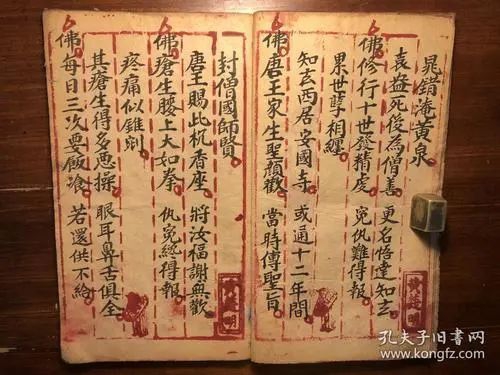 晁錯淹黃泉
袁盎死後為僧善 更名悟達知玄
佛修行十世發精虔 寃仇難得報
累世孽相纏
知玄西居安國寺 或通十二年間
佛唐王家生聖顏歡 當時傳聖旨
封僧國師賢
唐王賜此杌香座 將汝福謝與歡
佛瘡生腰上大如拳 仇寃總得報
疼痛似錐剜
其瘡生得多悪操 眼耳鼻舌俱全
佛每日三次要飯飡 若還供不給
孔夫子旧书网
www.kongfz.com